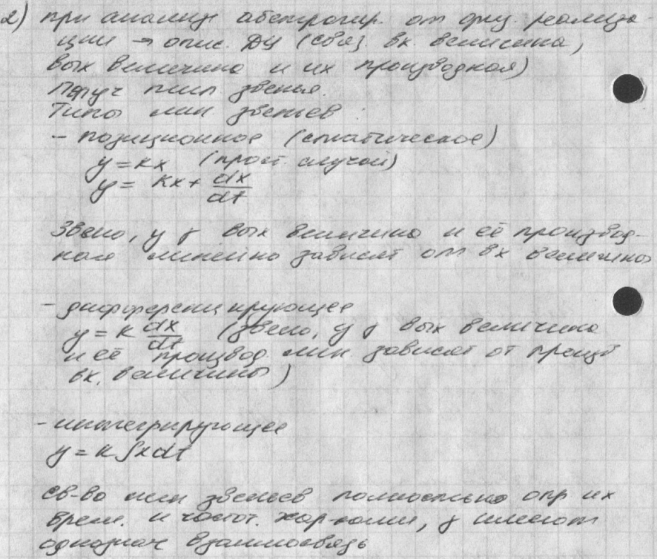 2) при анализе абстрагир. от физ. реализа-
ции → опис. ДУ (связ вх величина,
вых величина и их производная)
звенья
Типы лин звеньев
- позиционное (статическое)
y = kx (прост случай)
y = kx + dx/dt
Звено, у γ вых величина и её производ-
ная линейно зависят от вх величины
- дифференцирующее
y = k dx/dt (звено, у γ вых величина
и её производ. лин. зависят от произв
вх. величины)
- интегрирующее
y = k∫xdt
св-во лин звеньев полностью опр их
врем. и частот. хар-ками, γ имеют
однознач взаимосвязь